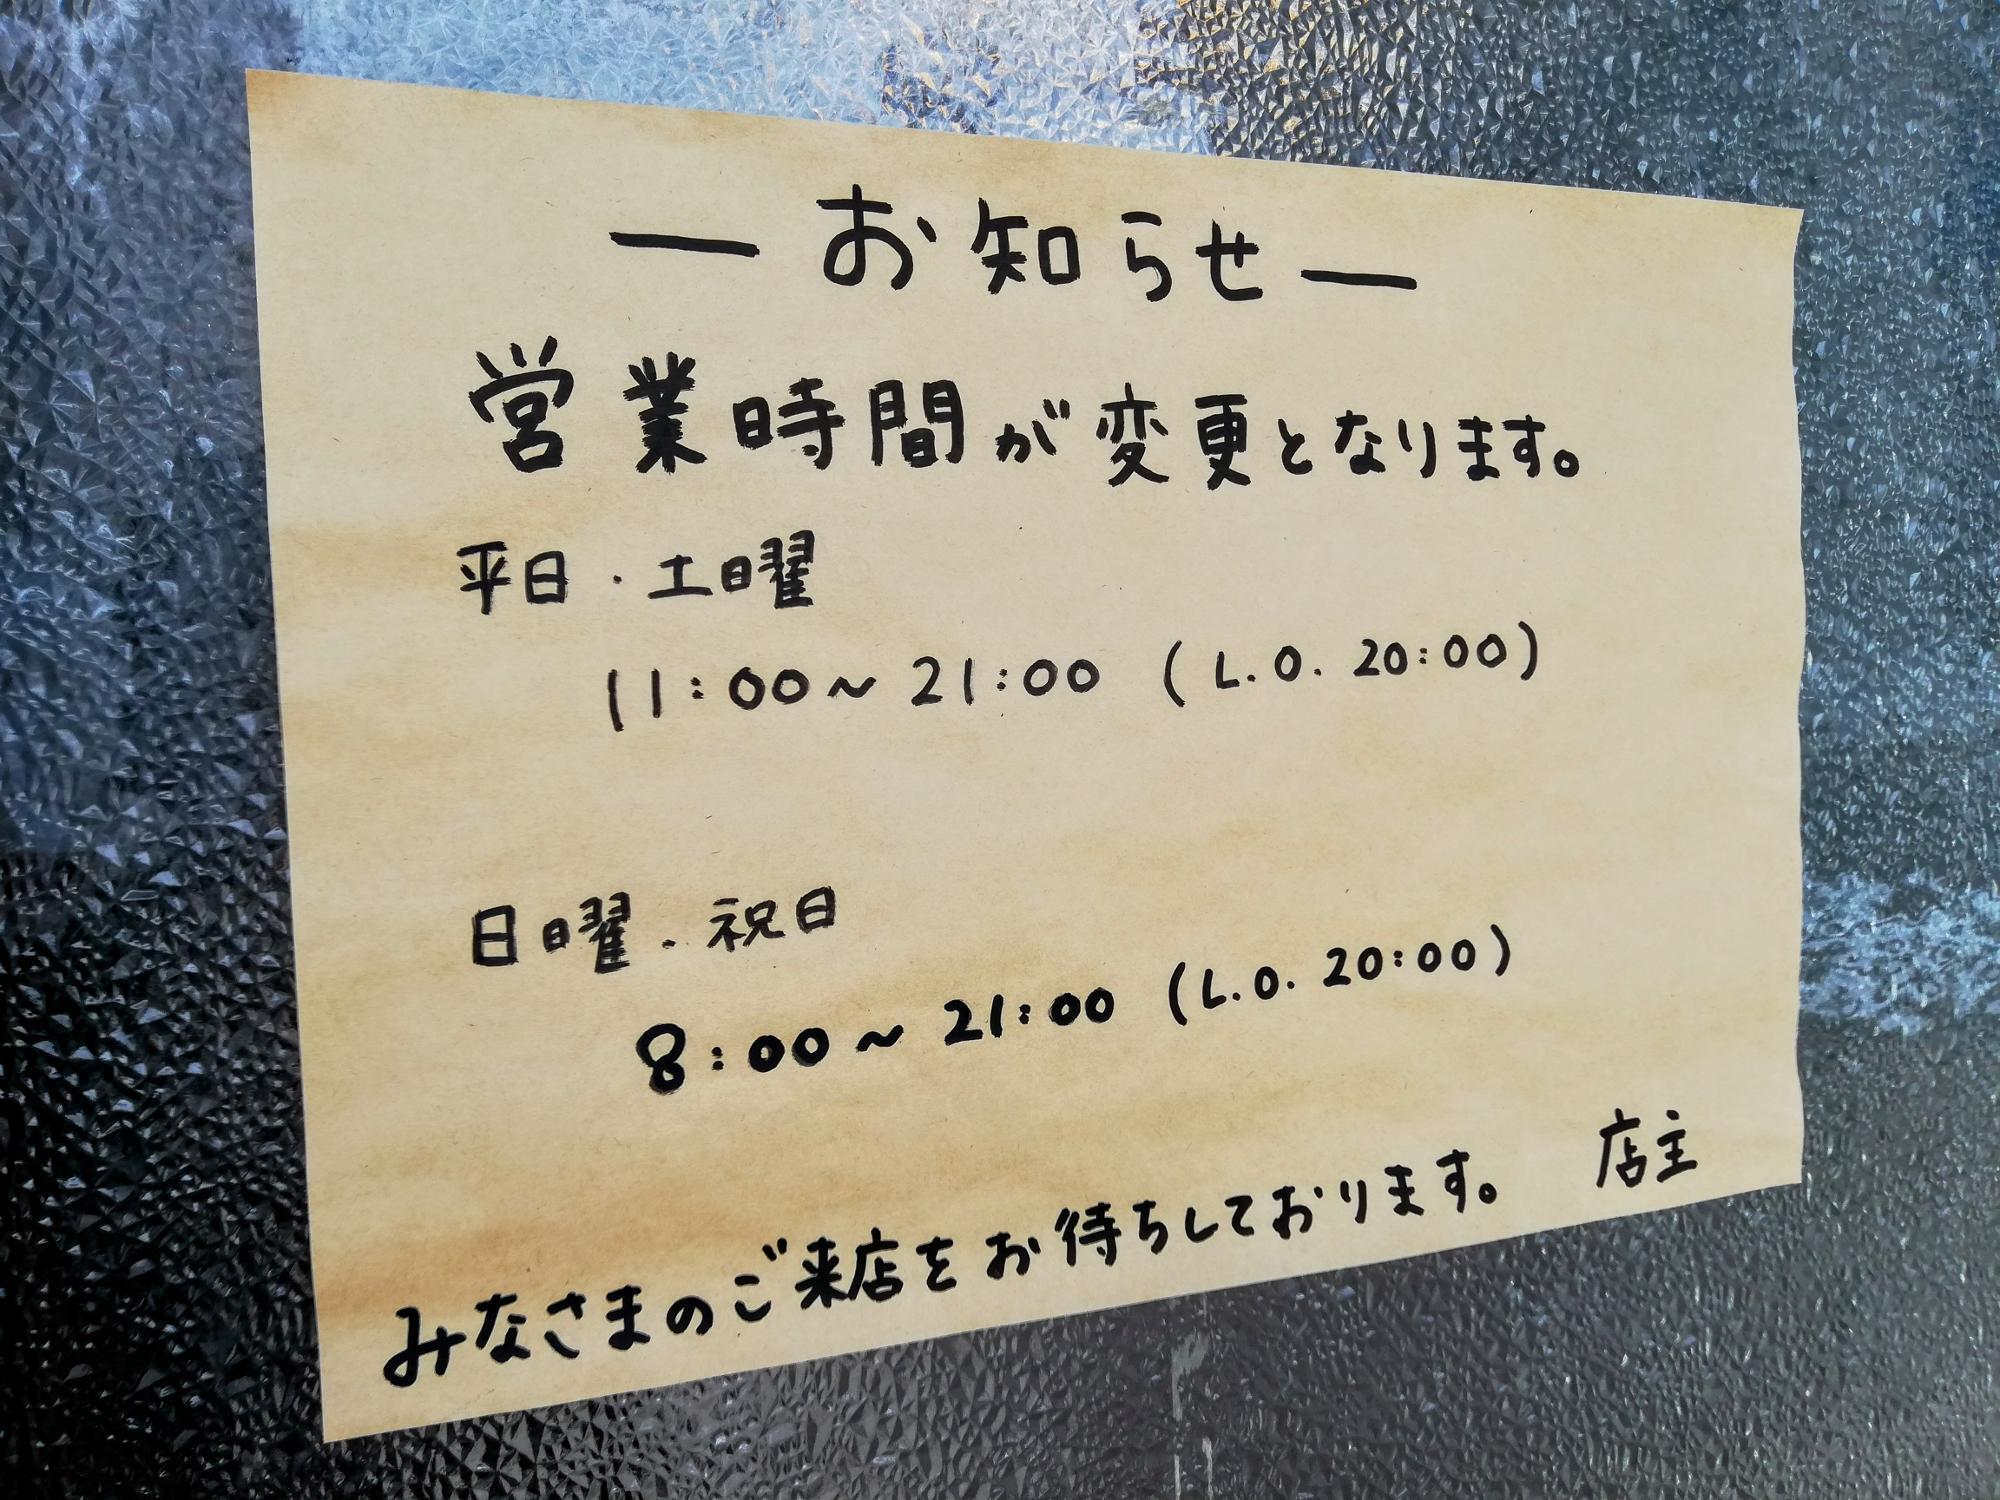 — お知らせ —
営業時間が変更となります。
平日・土曜
11:00～21:00 (L.O. 20:00)
日曜・祝日
8:00～21:00 (L.O. 20:00)
みなさまのご来店をお待ちしております。 店主